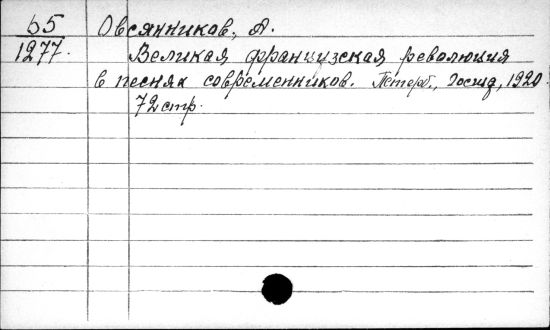 65 Овсянников, А.
1277. Великая французская революция
в песнях современников. Петерб., Госизд, 1920.
72 стр.